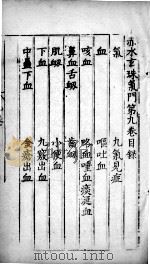 赤水玄珠氣門第九卷目錄
氣　九氣見症
血　嘔吐血
咳血　咯血唾血痰涎血
鼻血舌衄　齒衄
肌衄　小便血
下血　九竅出血
中蠱下血　金瘡出血